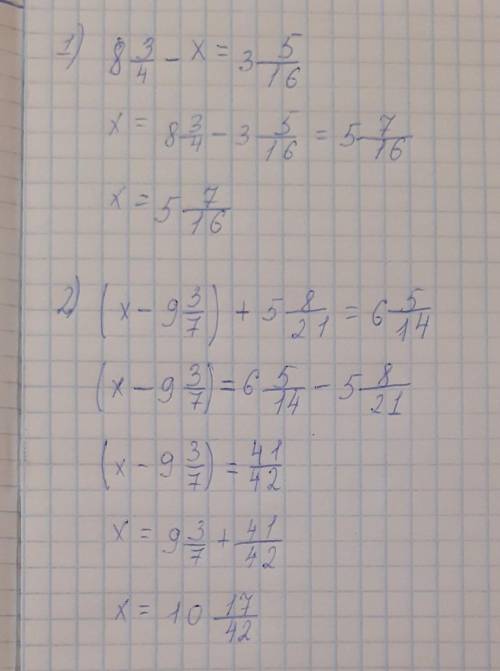 1) 8 3/4 - x = 3 5/16
x = 8 3/4 - 3 5/16 = 5 7/16
x = 5 7/16
2) (x - 9 3/7) + 5 8/21 = 6 5/14
(x - 9 3/7) = 6 5/14 - 5 8/21
(x - 9 3/7) = 41/42
x = 9 3/7 + 41/42
x = 10 17/42